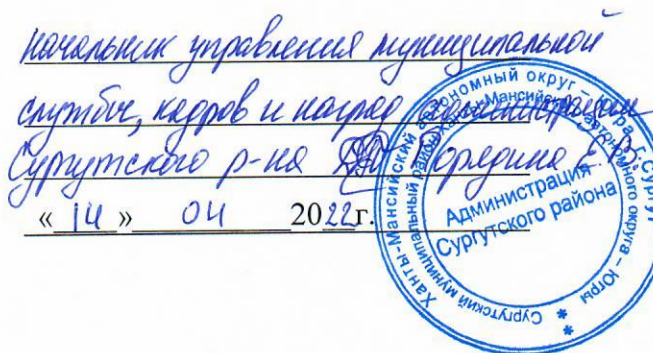 начальник управления муниципальной
службы, кадров и наград администрации
Сургутского р-на
« 14 » 04 2022г.
Ханты-Мансийский автономный округ – Югра
Сургутский муниципальный район Ханты-Мансийского автономного округа – Югры
Администрация
Сургутского района